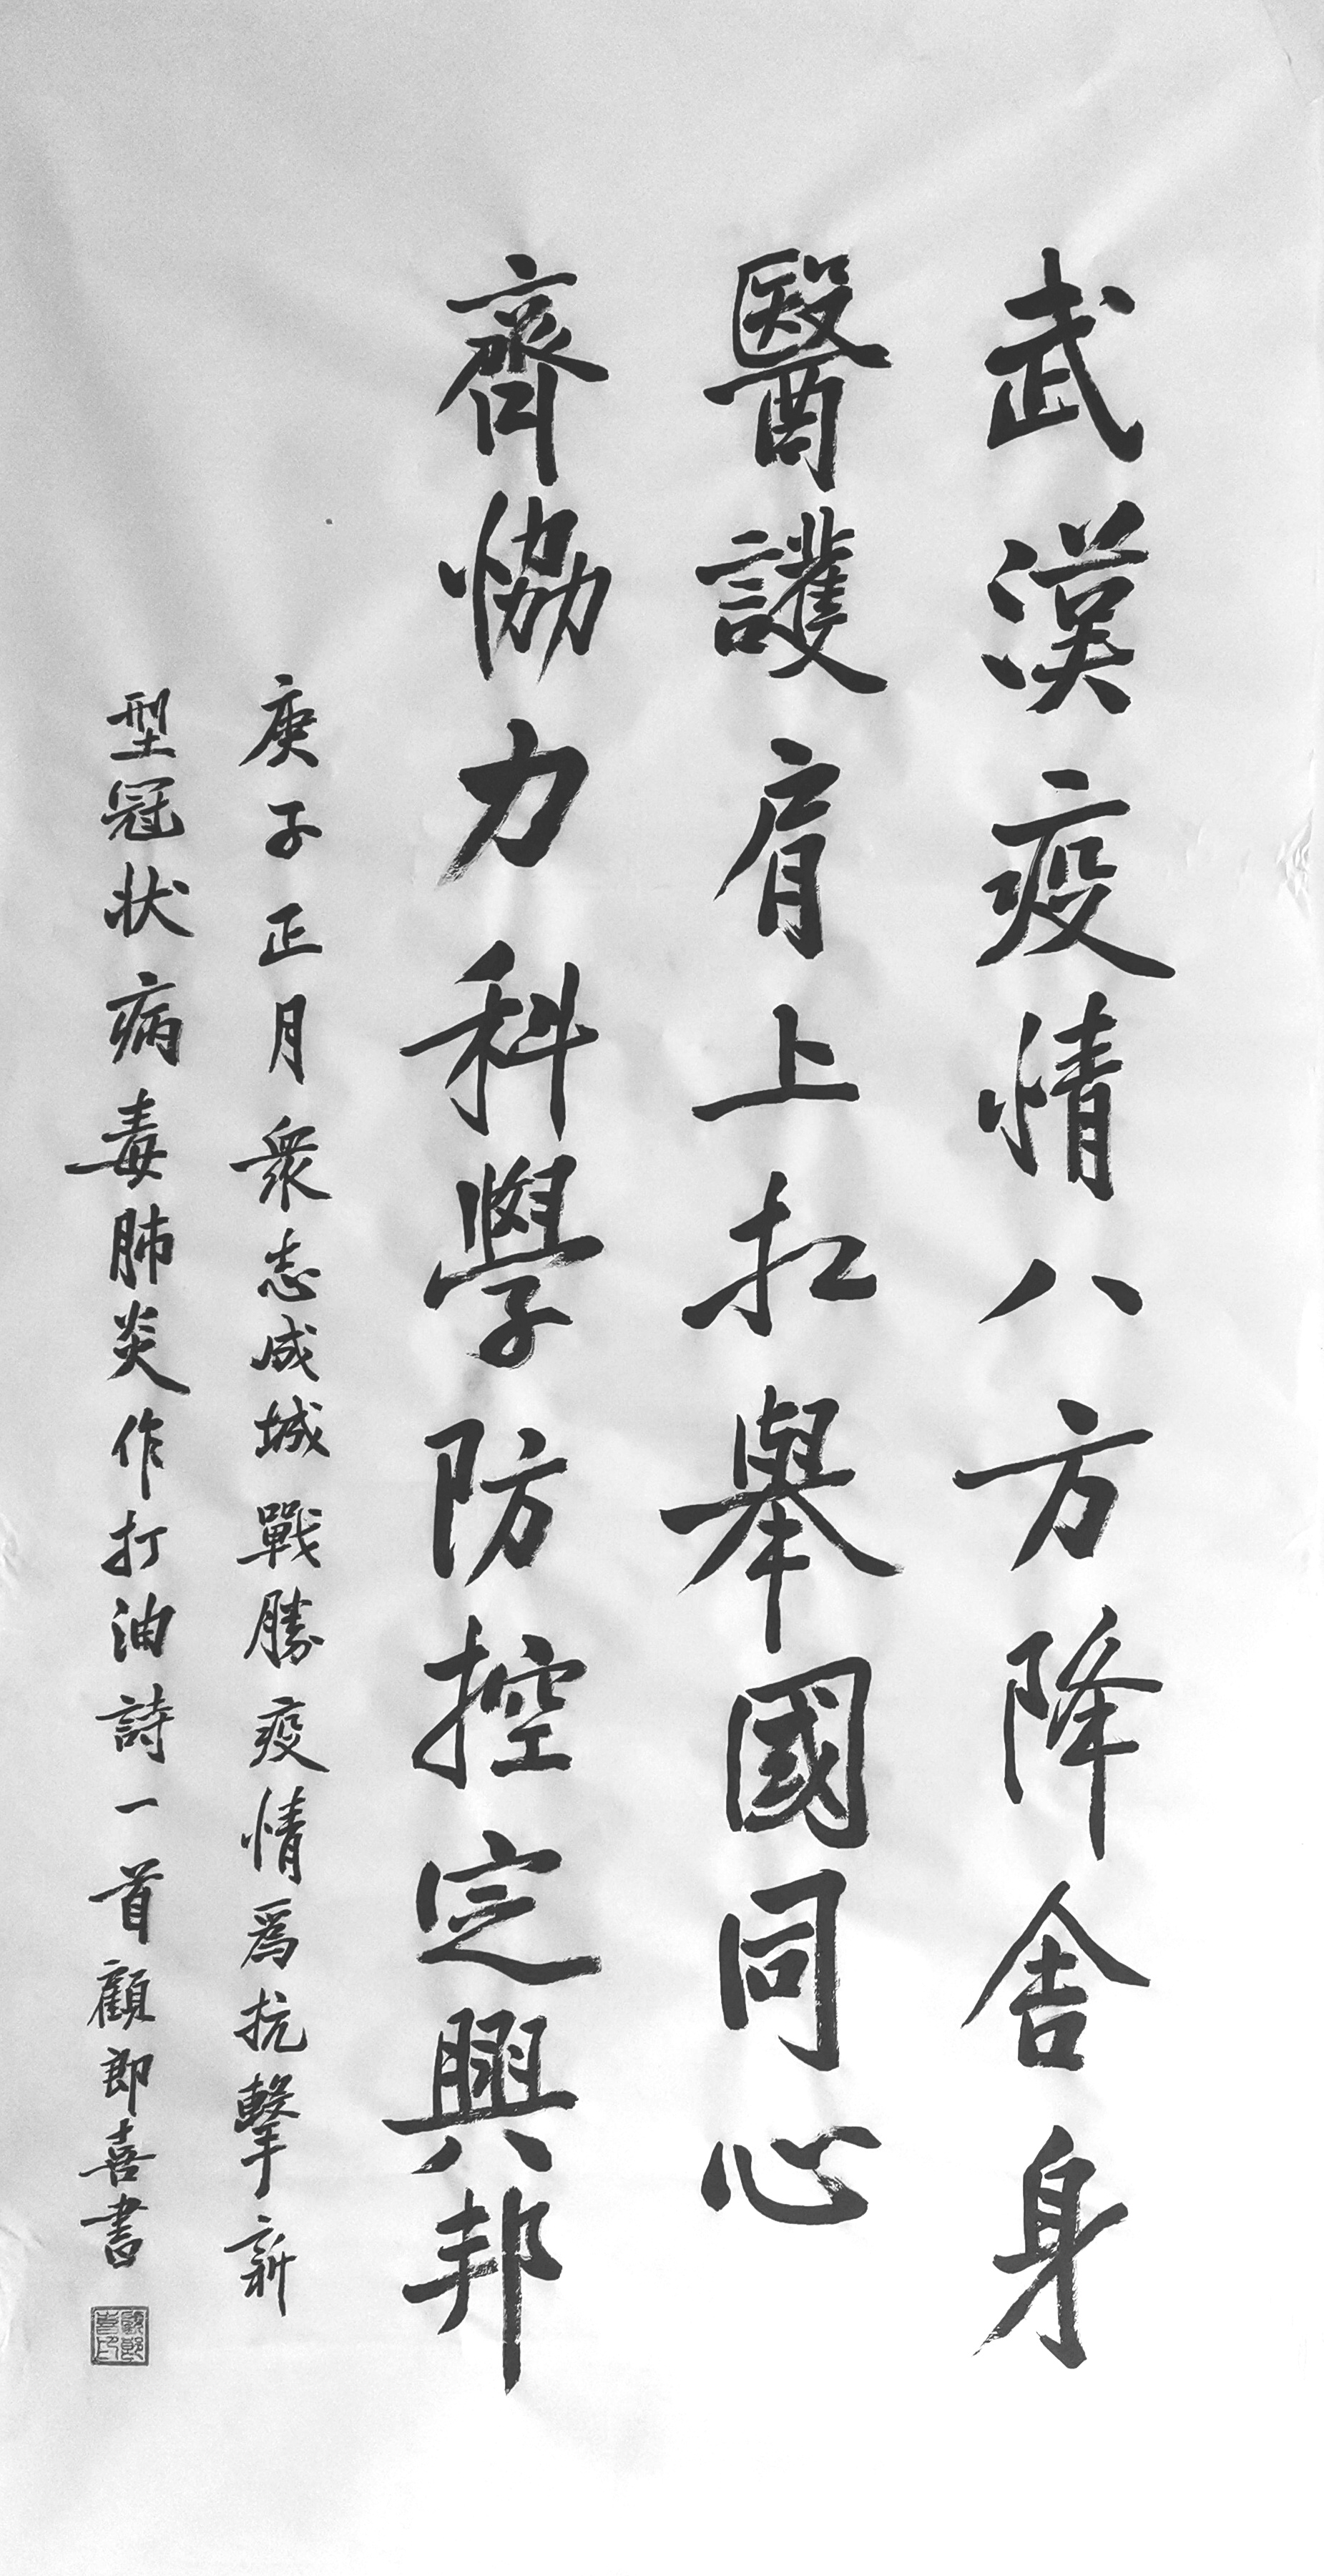 武漢疫情八方降舍身
醫護肩上扛舉國同心
齊恊力科學防控定興邦
庚子正月衆志成城戰勝疫情爲抗擊新
型冠状病毒肺炎作打油詩一首顧郎喜書
顧郎喜印